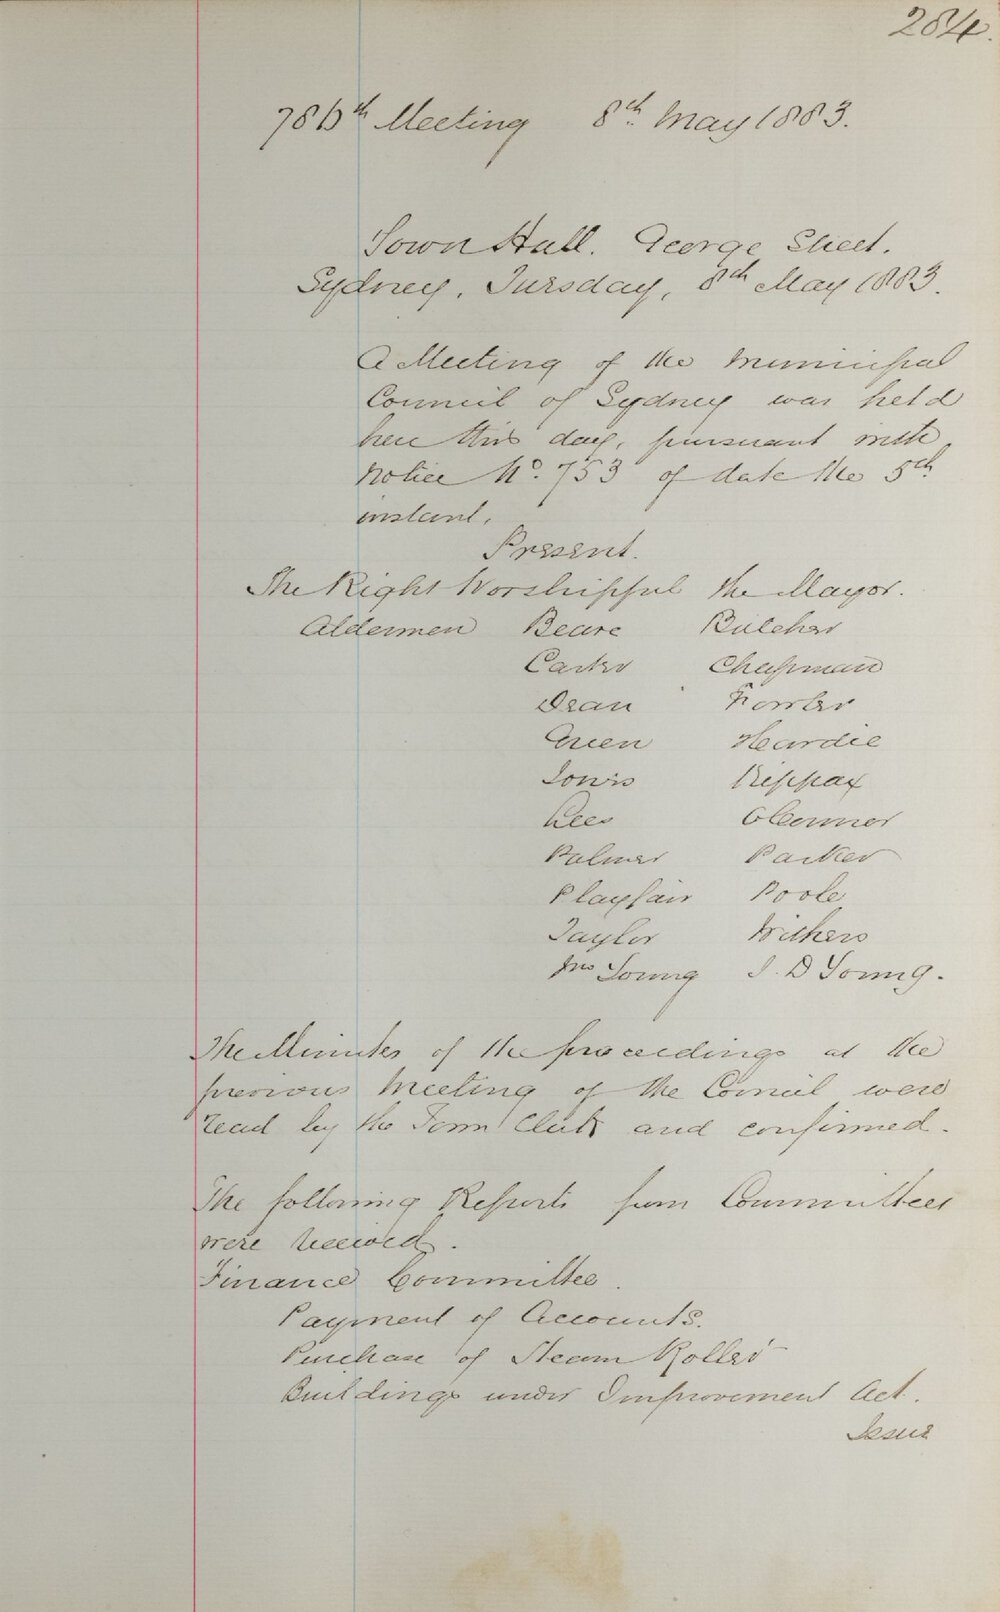 284.
786th Meeting 8th May 1883.
Town Hall. George Street.
Sydney, Tuesday, 8th May 1883.
A Meeting of the Municipal
Council of Sydney was held
here this day, pursuant with
notice No. 753 of date the 5th
instant.
Present.
The Right Worshipful the Mayor.
Aldermen Beare Butcher
Carter Chapman
Dean Fowler
Green Hardie
Jones Kippax
Lees O'Connor
Palmer Parker
Playfair Poole
Taylor Withers
Jno Young J. D Young.
The Minutes of the proceedings at the
previous Meeting of the Council were
read by the Town Clerk and confirmed.
The following Reports from Committees
were received.
Finance Committee.
Payment of Accounts.
Purchase of Steam Roller
Buildings under Improvement Act.
Issue